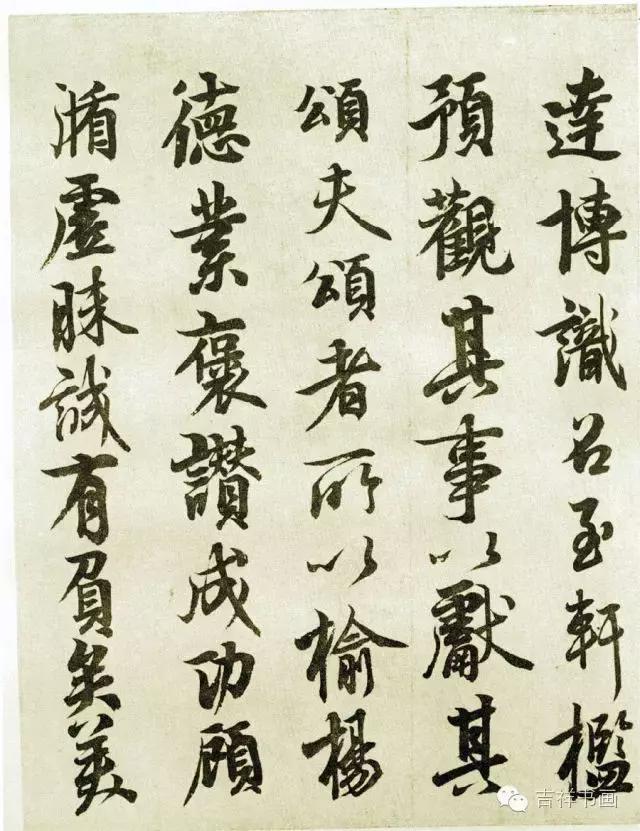 達博識召至軒檻
預觀其事以獻其
頌夫頌者所以榆楊
德業褒讚成功顧
循虛昧誠有負矣美
吉祥书画